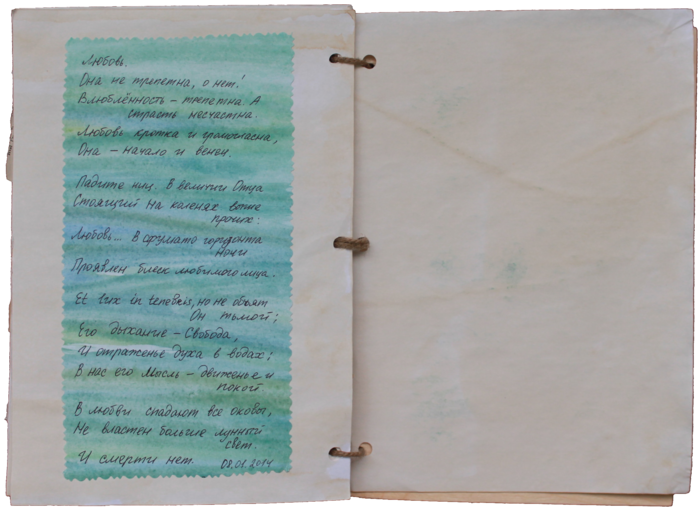 Любовь.
Она не трепетна, о нет!
Влюблённость – трепетна. А
страсть несчастна.
Любовь кротка и громогласна,
Она – начало и венец.
Падите ниц. В величии Отца
Стоящий на коленях выше
прочих:
Любовь... В сфумато горизонта
ночи
Проявлен блеск любимого лица.
Et lux in tenebris, но не объят
Он тьмой;
Его дыхание – Свобода,
И отраженье духа в водах;
В нас его Мысль – движенье и
покой.
В любви спадают все оковы,
Не властен больше лунный
свет.
И смерти нет. 08.01.2014